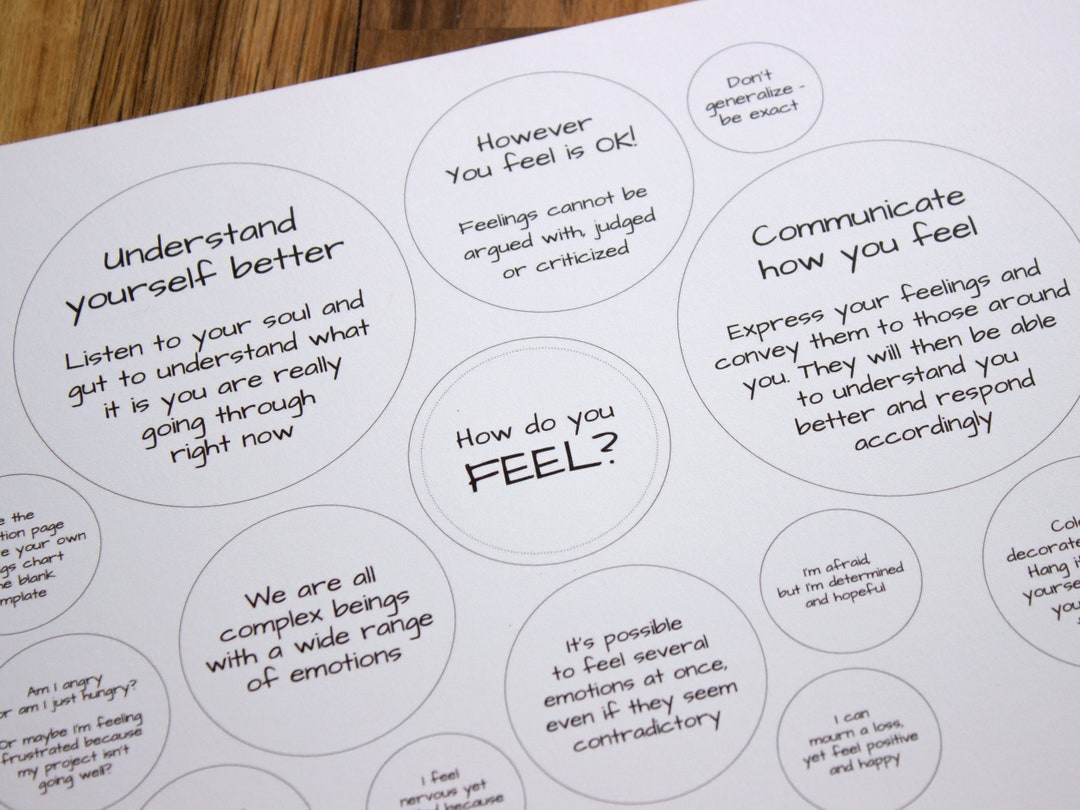 Don't
generalize -
be exact
However
you feel is OK!
Feelings cannot be
argued with, judged
or criticized
Understand
yourself better
Listen to your soul and
gut to understand what
it is you are really
going through
right now
Communicate
how you feel
Express your feelings and
convey them to those around
you. They will then be able
to understand you
better and respond
accordingly
How do you
FEEL?
the
page
your own
chart
blank
We are all
complex beings
with a wide range
of emotions
It's possible
to feel several
emotions at once,
even if they seem
contradictory
I'm afraid,
but I'm determined
and hopeful
decorate
Hang
Am I angry
or am I just hungry?
Or maybe I'm feeling
frustrated because
my project isn't
going well?
I can
mourn a loss,
yet feel positive
and happy
I feel
nervous yet
because